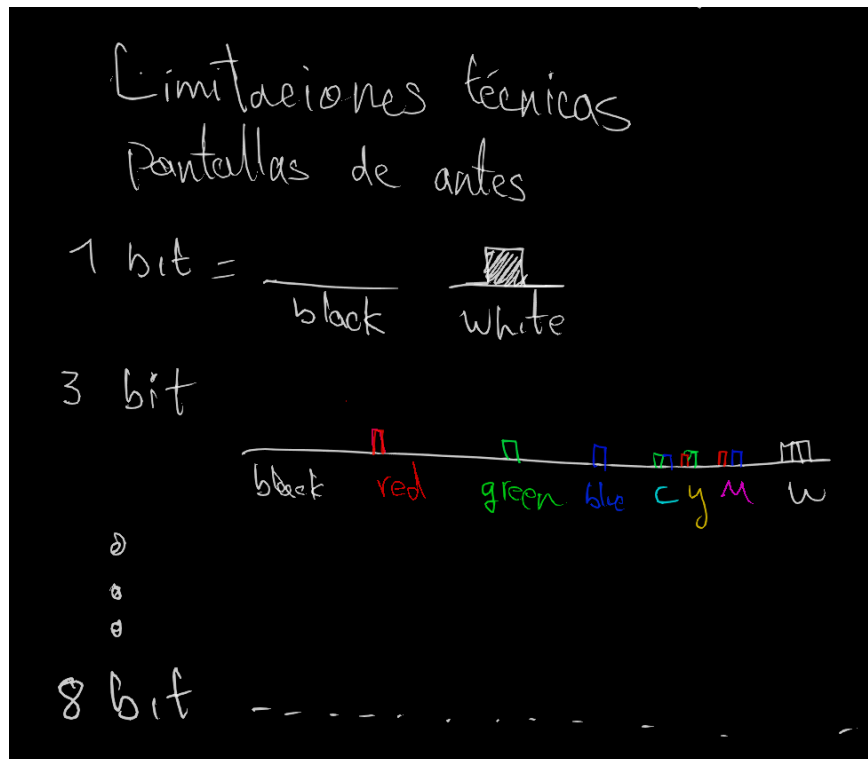 Limitaciones técnicas
Pantallas de antes
1 bit =
black white
3 bit
black red green blue C y M W
8 bit